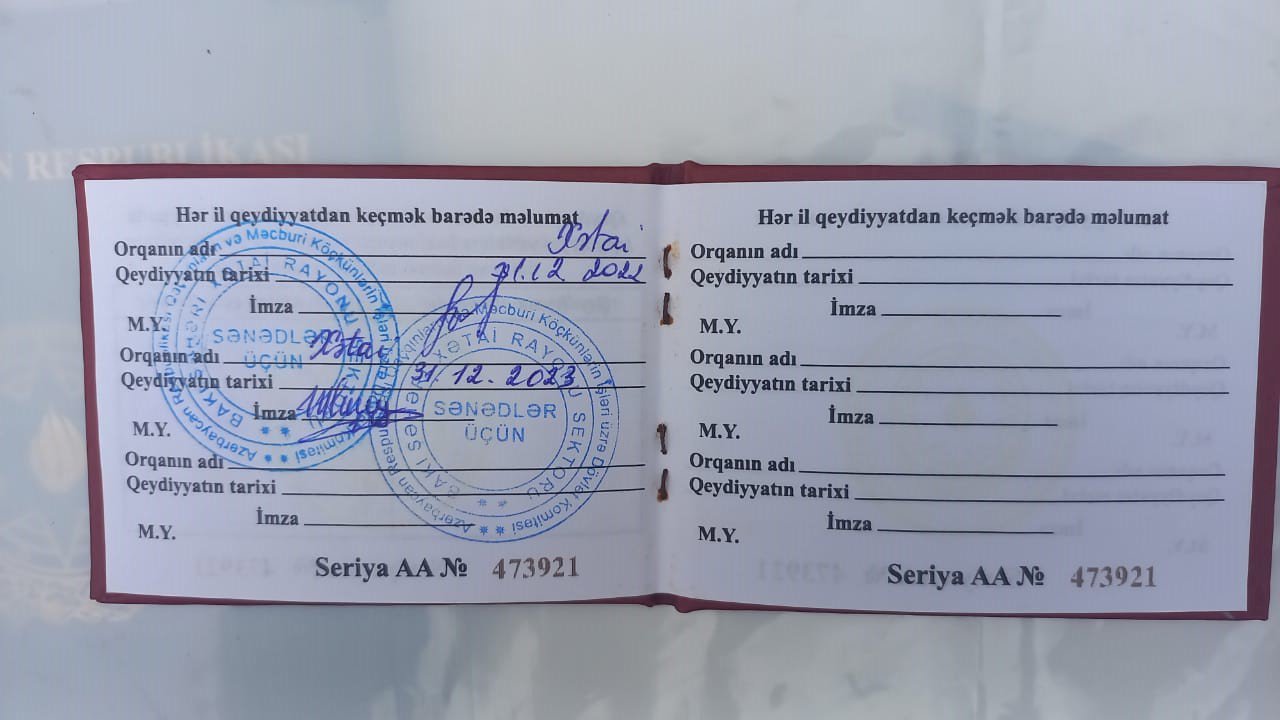 N RESPUBLİKASI
Hər il qeydiyyatdan keçmək barədə məlumat
Orqanın adı Xətai
Qeydiyyatın tarixi 31.12 2022
İmza
M.Y.
Orqanın adı Xətai
Qeydiyyatın tarixi 31.12.2023
İmza
M.Y.
Orqanın adı
Qeydiyyatın tarixi
İmza
M.Y.
Seriya AA № 473921
Azərbaycan Respublikası Qaçqınların və Məcburi Köçkünlərin İşləri üzrə Dövlət Komitəsi
BAKI ŞƏHƏRİ XƏTAİ RAYONU SEKTORU
SƏNƏDLƏR
ÜÇÜN
Azərbaycan Respublikası Qaçqınların və Məcburi Köçkünlərin İşləri üzrə Dövlət Komitəsi
BAKI ŞƏHƏRİ XƏTAİ RAYONU SEKTORU
SƏNƏDLƏR
ÜÇÜN
Hər il qeydiyyatdan keçmək barədə məlumat
Orqanın adı
Qeydiyyatın tarixi
İmza
M.Y.
Orqanın adı
Qeydiyyatın tarixi
İmza
M.Y.
Orqanın adı
Qeydiyyatın tarixi
İmza
M.Y.
Seriya AA № 473921